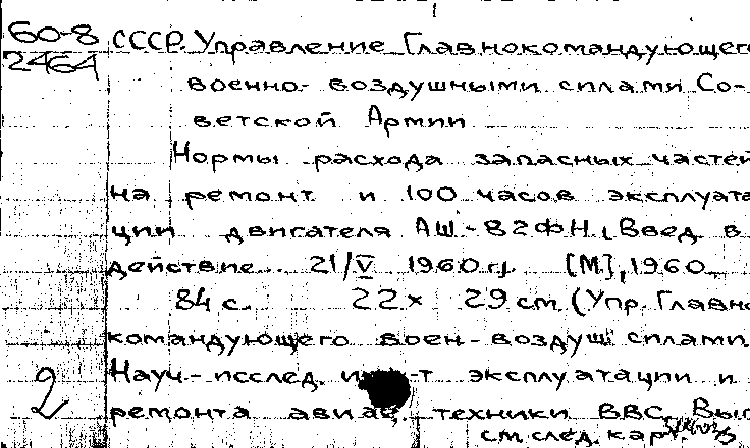 60-8
2464
СССР. Управление Главнокомандующего
военно-воздушными силами Со-
ветской Армии
Нормы расхода запасных частей
на ремонт и 100 часов эксплуата
ции двигателя АШ-82ФН. Введ. в
действие 21/V 1960 г. [М], 1960
84 с. 22 х 29 см (Упр. Главно
командующего воен-воздуш силами.
Науч-исслед. ин-т эксплуатации и
2
ремонта авиац. техники ВВС. Вып
см. след. карт.